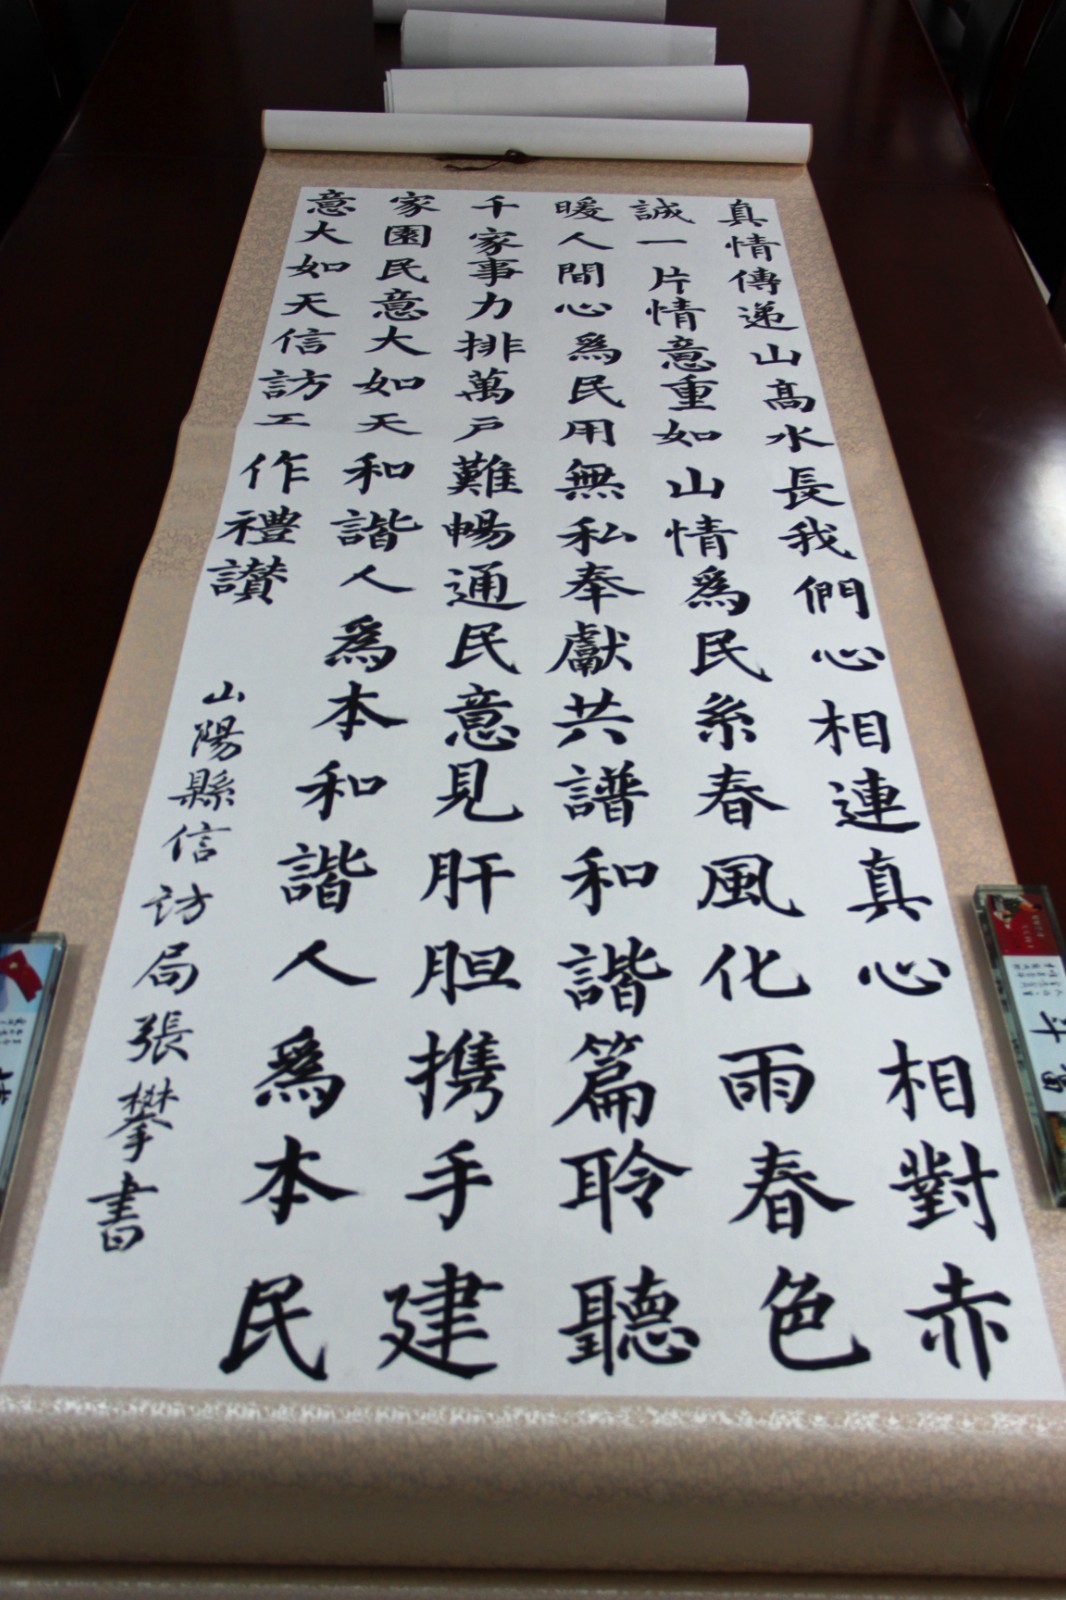 真情傳递山高水長我們心相連真心相對赤
誠一片情意重如山情為民系春風化雨春色
暖人間心為民用無私奉獻共譜和諧篇聆聽
千家事力排萬戶難暢通民意見肝胆携手建
家園民意大如天和諧人為本和諧人為本民
意大如天信訪工作禮讃
山陽縣信訪局張攀書